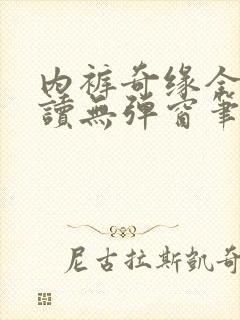 内裤奇缘全
讀無彈窗筆
尼古拉斯凱奇